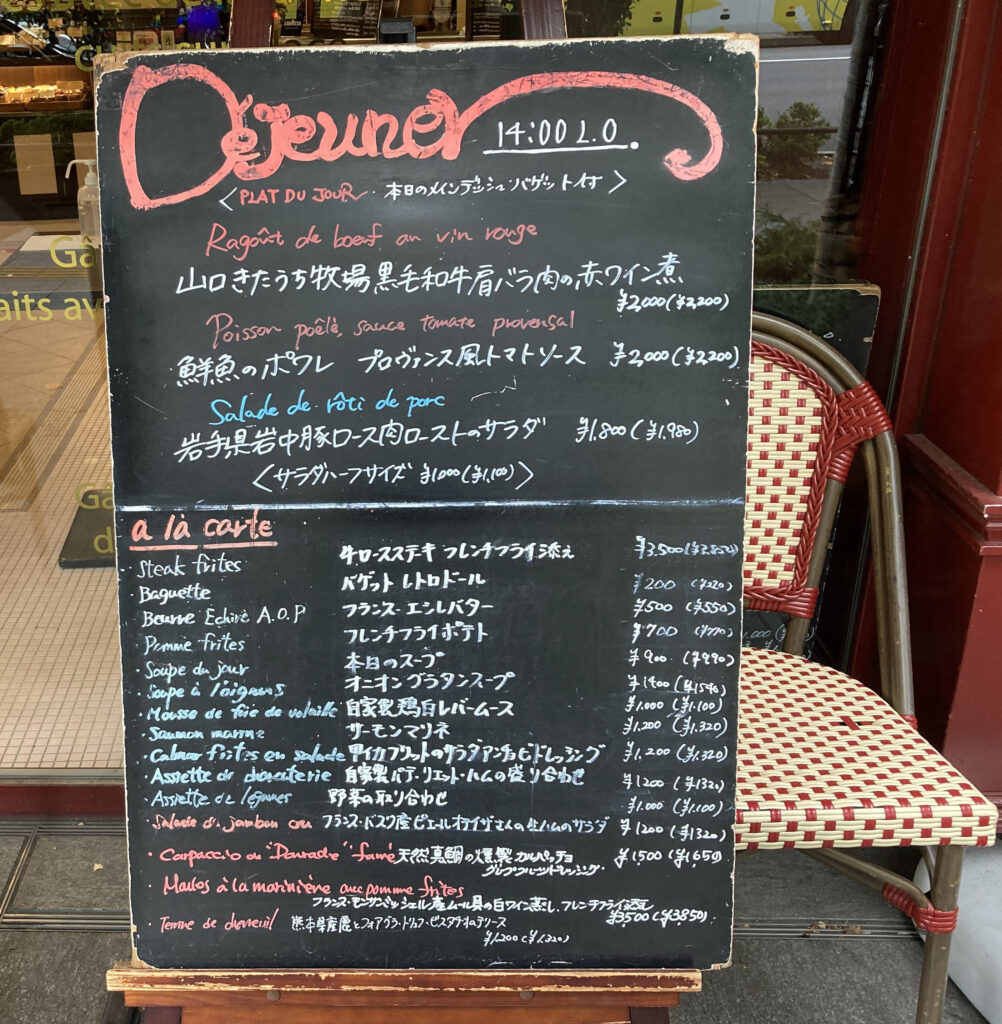 Déjeuner 14:00 L.O.
< PLAT DU JOUR・本日のメインディッシュ・バゲット付 >
Ragoût de bœuf au vin rouge
山口きたうち牧場黒毛和牛肩バラ肉の赤ワイン煮
¥2,000(¥2,200)
Poisson poêlé, sauce tomate provensal
鮮魚のポワレ プロヴァンス風トマトソース ¥2,000(¥2,200)
Salade de rôti de porc
岩手県岩中豚ロース肉ローストのサラダ ¥1,800(¥1,980)
<サラダハーフサイズ ¥1,000(¥1,100)>
a là carte
Steak frites 牛ロースステキ フレンチフライ添え ¥3,500(¥3,850)
Baguette バゲット レトロドール ¥200 (¥220)
Beurre Echiré A.O.P フランス・エシレバター ¥500 (¥550)
Pomme frites フレンチフライポテト ¥700 (¥770)
・Soupe du jour 本日のスープ ¥900 (¥990)
・Soupe à l'oignons オニオングラタンスープ ¥1400 (¥1540)
・Mousse de foie de volaille 自家製鶏白レバームース ¥1,000 (¥1,100)
・Saumon marine サーモンマリネ ¥1,200 (¥1,320)
・Calmar frites en salade 甲イカフリットのサラダアンチョビドレッシング ¥1,200 (¥1,320)
・Assiette de charcuterie 自家製パテ・リエット・ハムの盛り合わせ ¥1200 (¥1320)
・Assiette de légumes 野菜の取り合わせ ¥1,000 (¥1,100)
・Salade du jambon cru フランス・バスク産ピエールオテイザさんの生ハムのサラダ ¥1200 (¥1320)
・Carpaccio de "Daurade" fumé 天然真鯛の燻製 カルパッチョ ¥1500 (¥1650)
グレープフルーツドレッシング・
・Moules à la marinière avec pomme frites
フランス・モンサンミッシェル産ムール貝の白ワイン蒸し、フレンチフライ添え
¥3500(¥3850)
Terrine de chevreuil 熊本県産鹿とフォアグラ・トリュフ・ピスタチオのテリーヌ
¥1,200(¥1,320)
Gâ
aits av